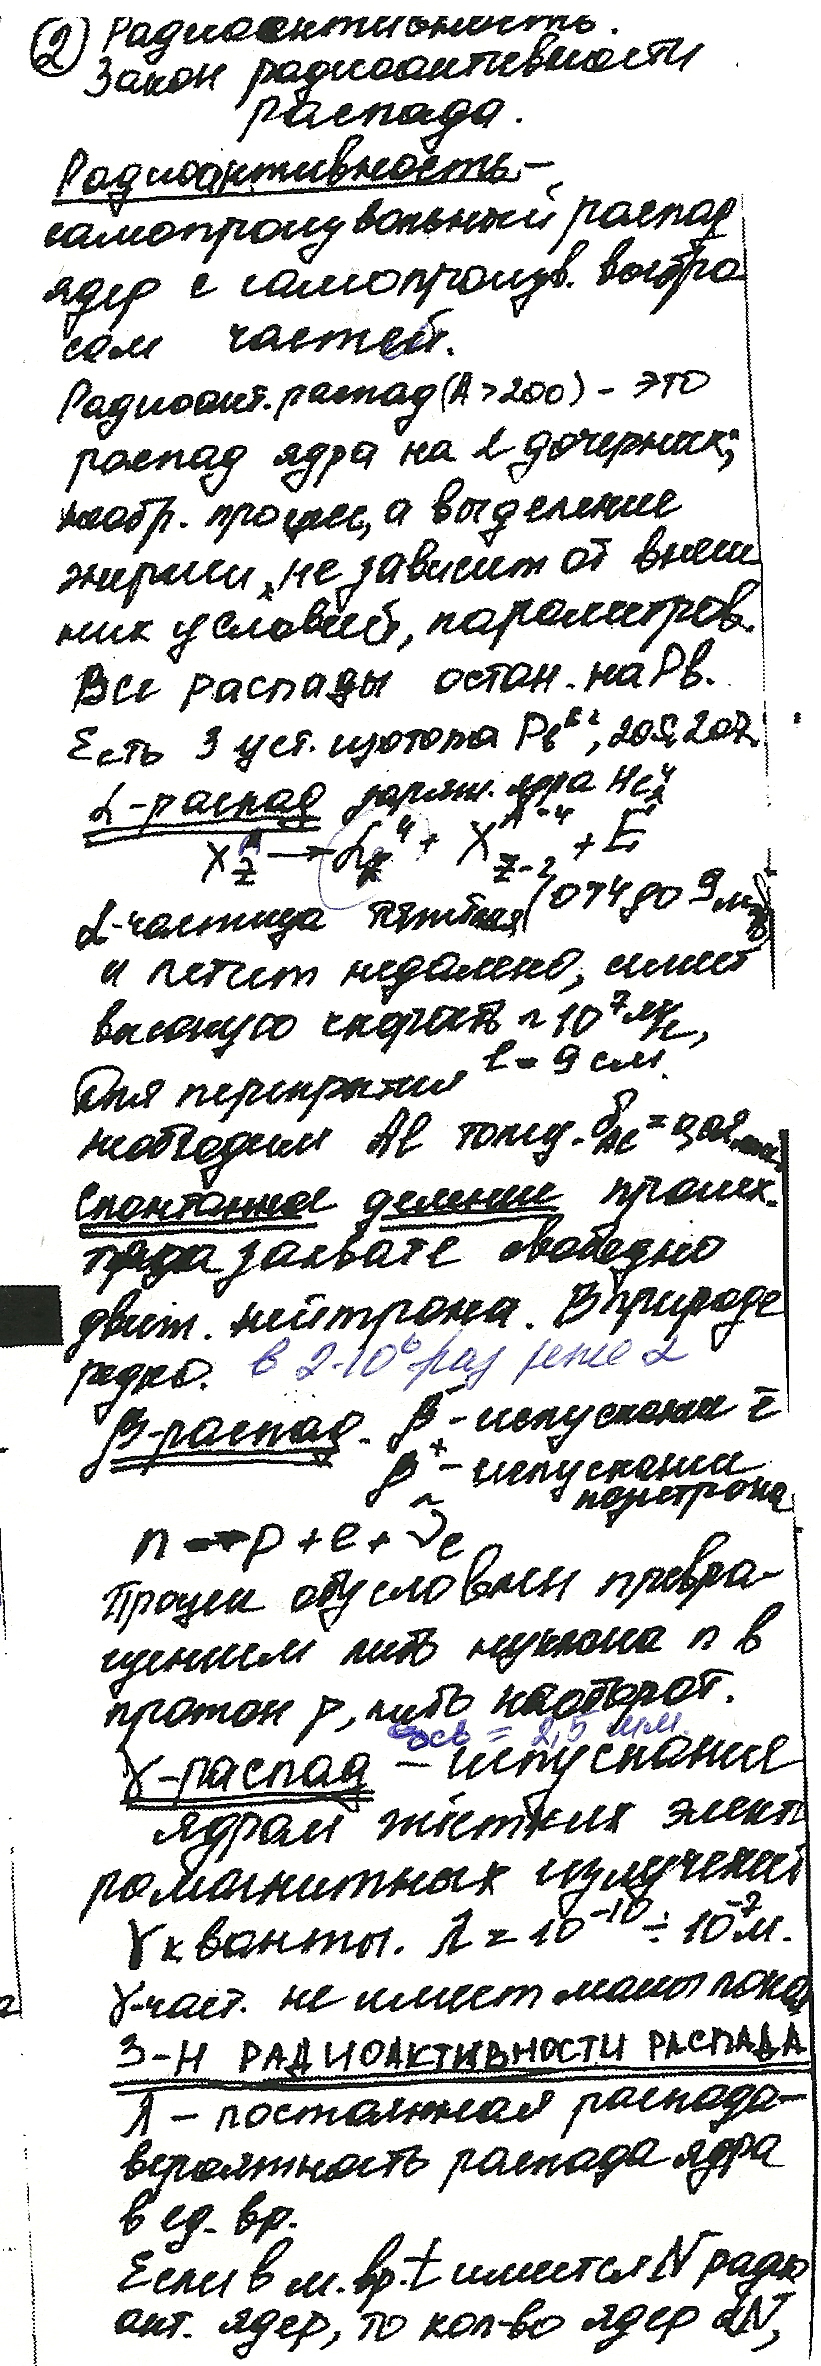 ② Радиоактивность.
Закон радиоактивности
распада.
Радиоактивность –
самопроизвольный распад
ядер с самопроизв. выбро
сом частей.
Радиоакт. распад (А>200) – это
распад ядра на 2 дочерних;
необр. процесс, а выделение
энергии не зависит от внеш
них условий, параметров.
Все распады остан. на Pb.
Есть 3 уст. изотопа Pb⁸², 205, 207.
α-распад заряж. ядра He₂⁴
X_Z^A → α₂⁴ + X_{Z-2}^{A-4} + E
α-частица тяжёлая (от 4 до 9 МэВ)
и летит недалеко, имеет
высокую скорость ~ 10⁷ м/с,
l = 9 см.
Для перекрытия
необходим Al толщ. δ_Al =
Спонтанное деление происх.
при захвате свободно
движ. нейтрона. В природе
редко. в 2·10⁶ раз реже α
β-распад. β⁻ – испускание ē
β⁺ – испускание
позитрона
n → p + e + ν̃e
Процесс обусловлен превра-
щением либо нуклона n в
протон p, либо наоборот.
= 2,5 мм.
γ-распад – испускание
ядром жёстких элект
ромагнитных излучений
γ кванты. λ = 10⁻¹⁰ ÷ 10⁻⁷ м.
γ-част. не имеет массы покоя
З-Н РАДИОАКТИВНОСТИ РАСПАДА
λ – постоянная распада –
вероятность распада ядра
в ед. вр.
Если в м. вр. t имеется N радио
акт. ядер, то кол-во ядер dN,